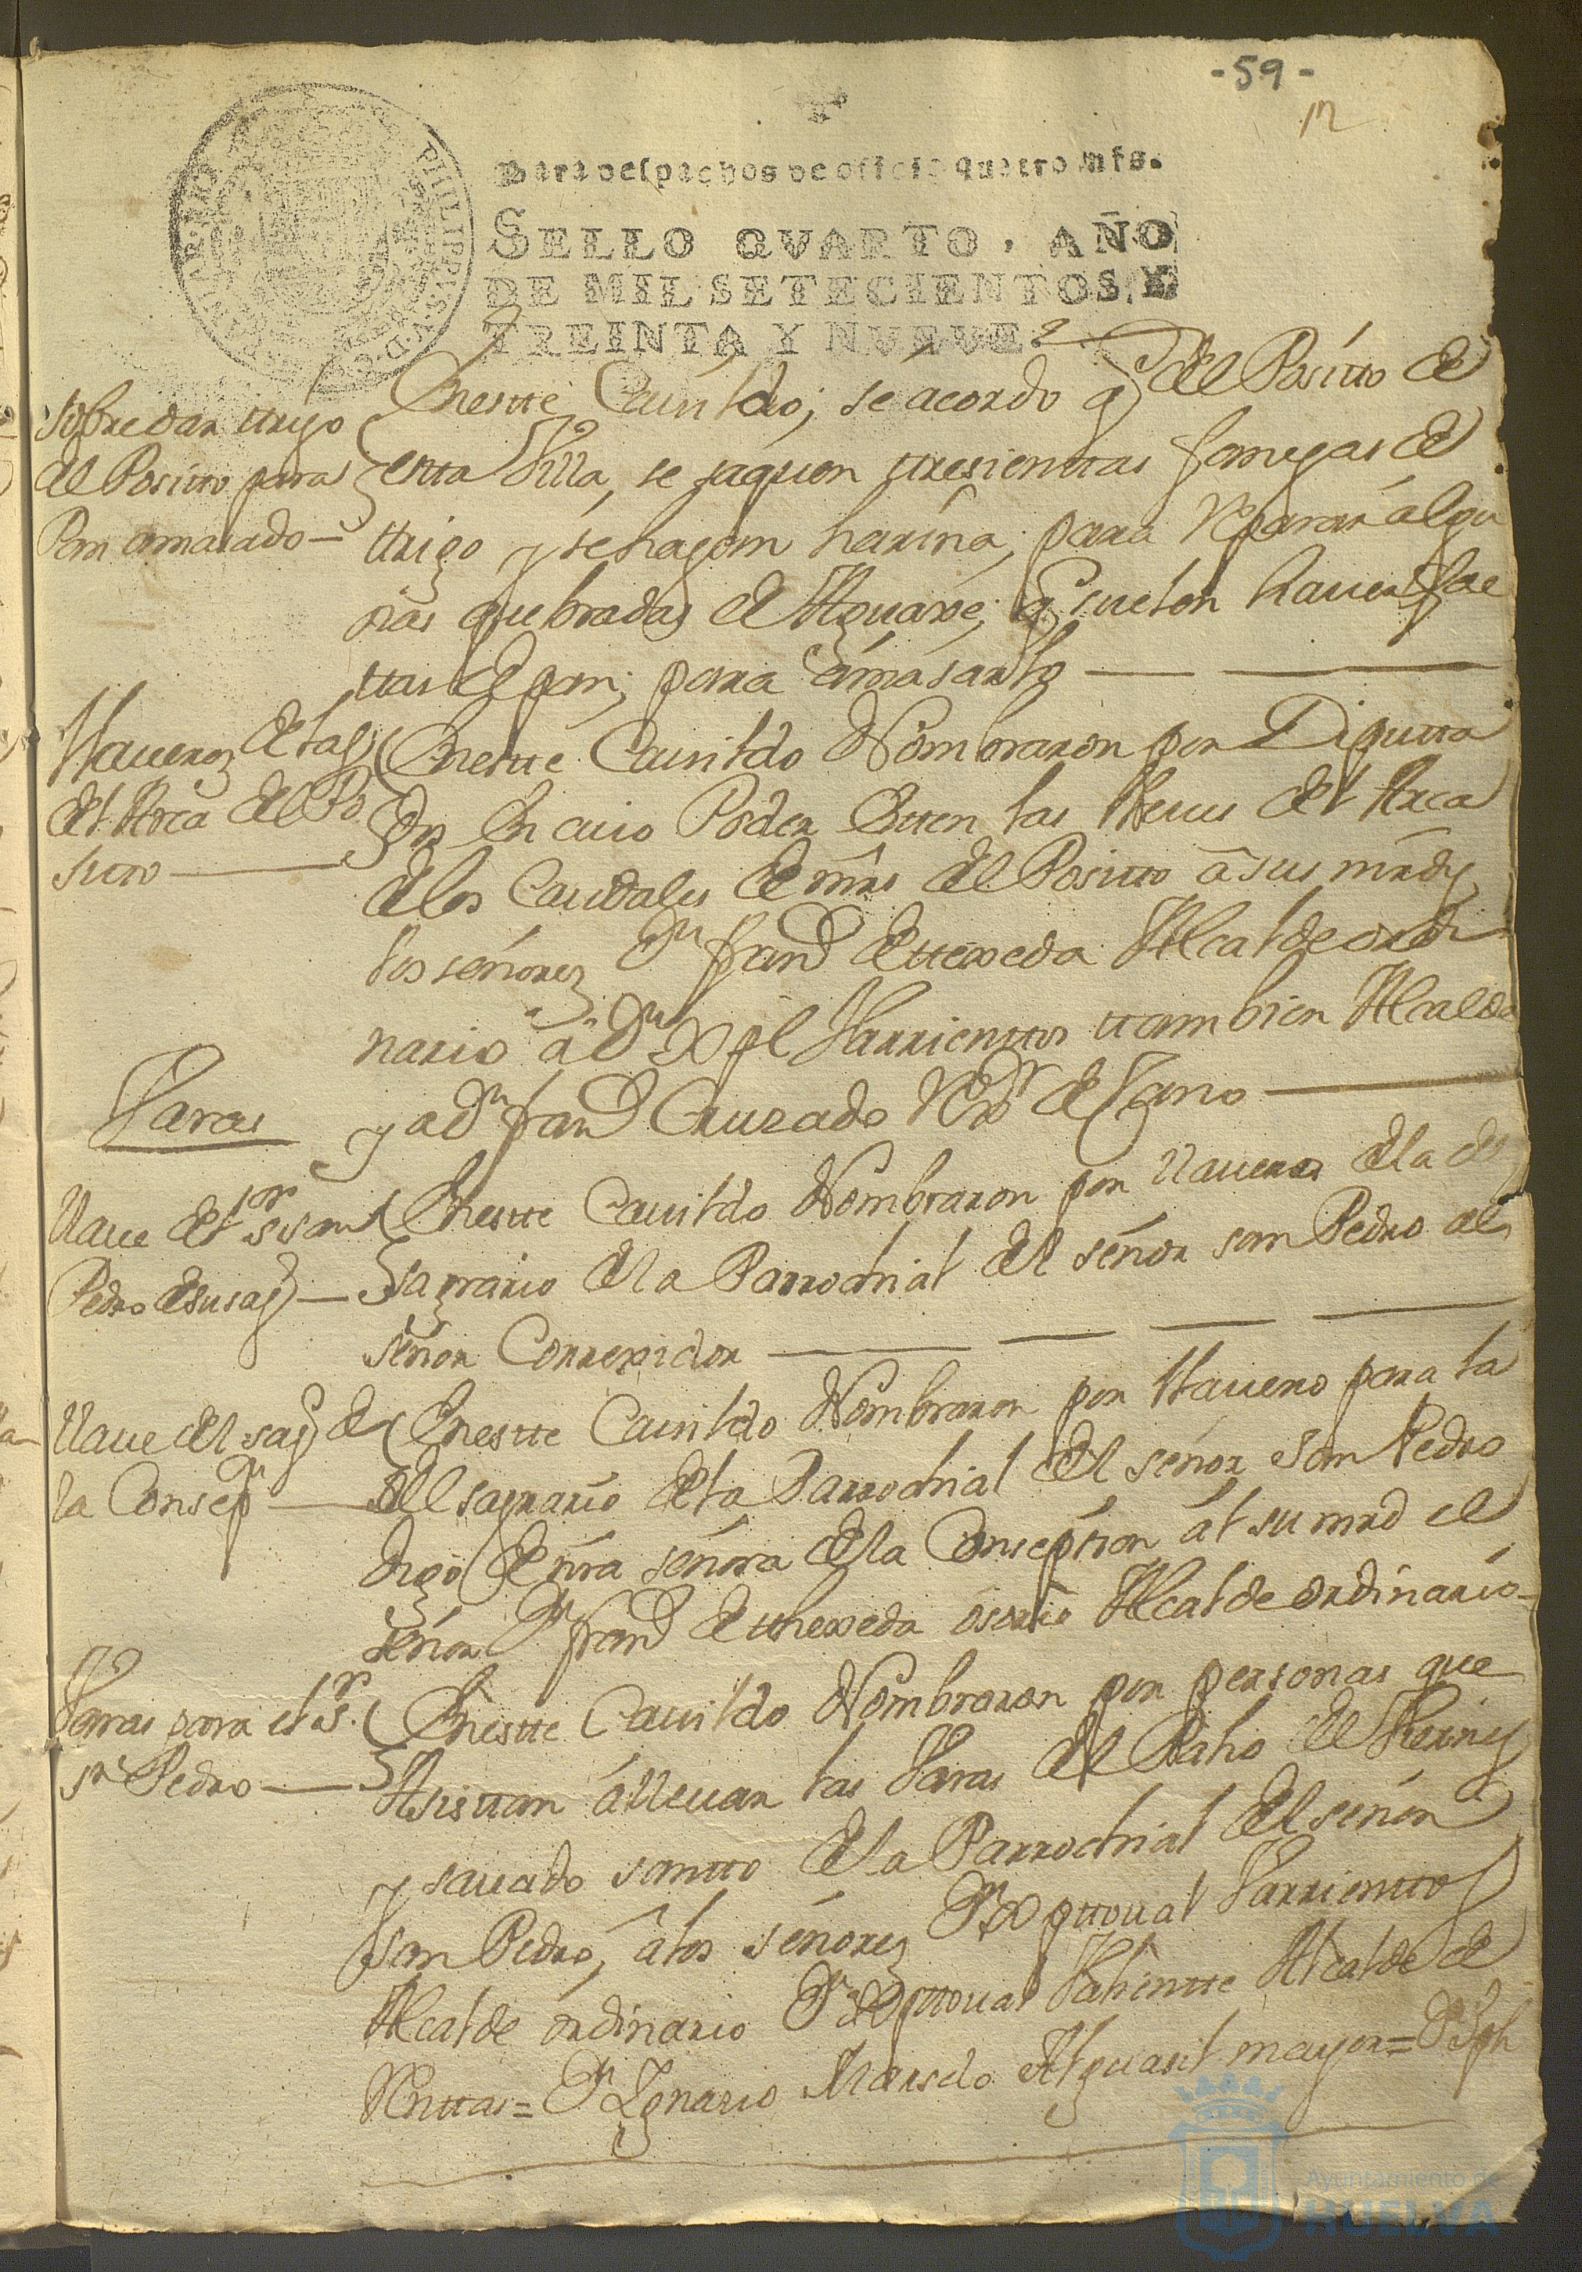 -59-
12
Para despachos de officio quatro mrs.
SELLO QVARTO, AÑO
DE MIL SETECIENTOS Y
TREINTA Y NUEVE
PHILIPPUS·V·D·G
sobre dar ttrigo
del Positto para
Pan amasado —
Enestte Cauildo, se acordo q del Positto de
estta Villa, se saquen ttresienttas fanegas de
ttrigo y se hagan harina, para Reparar algu
nas quebradas de Aguaxe, q suelen hauer fal
ttas de pan, para amasarlo
llaueros de las
del Arca del Po
sitto
Enestte Cauildo Nombraron por Diputta
dos En cuio Poder Estten las lleues del Arca
de los Caudales de mrs del Positto a sus mrds
los señores Dn franco de ttexeda Alcalde ordi
nario a Dn Xpl Varrienttos ttambien Alcalde
y a Dn franco Cruzado Rexor de Cano
Varas
llaue del sr san
Pedro de su sago
Enestte Cauildo Nombraron por llaueros de la de
sagrario de la Parrochial del señor san Pedro al
señor Correxidor
llaue del sago de
la Consepn
Enestte Cauildo Nombraron por llauero para la
del sagrario de la Parrochial del señor san Pedro
digo de nra señora de la Consepzion al su mrd el
señor Dn franco de tthexeda osorio Alcalde ordinario
Varas para el sr.
sn Pedro
Enestte Cauildo Nombraron por personas que
Asisttan a lleuar las Varas del Palio de
y sauado santto de la Parrochial del señor
san Pedro, a los señores Dn Xpttoual Varrienttos
Alcalde ordinario Dn Xpttoual Valientte Alcalde de
Renttas = Dn Ygnacio Alguasil mayor = Dn Jph
Ayuntamiento de
HUELVA